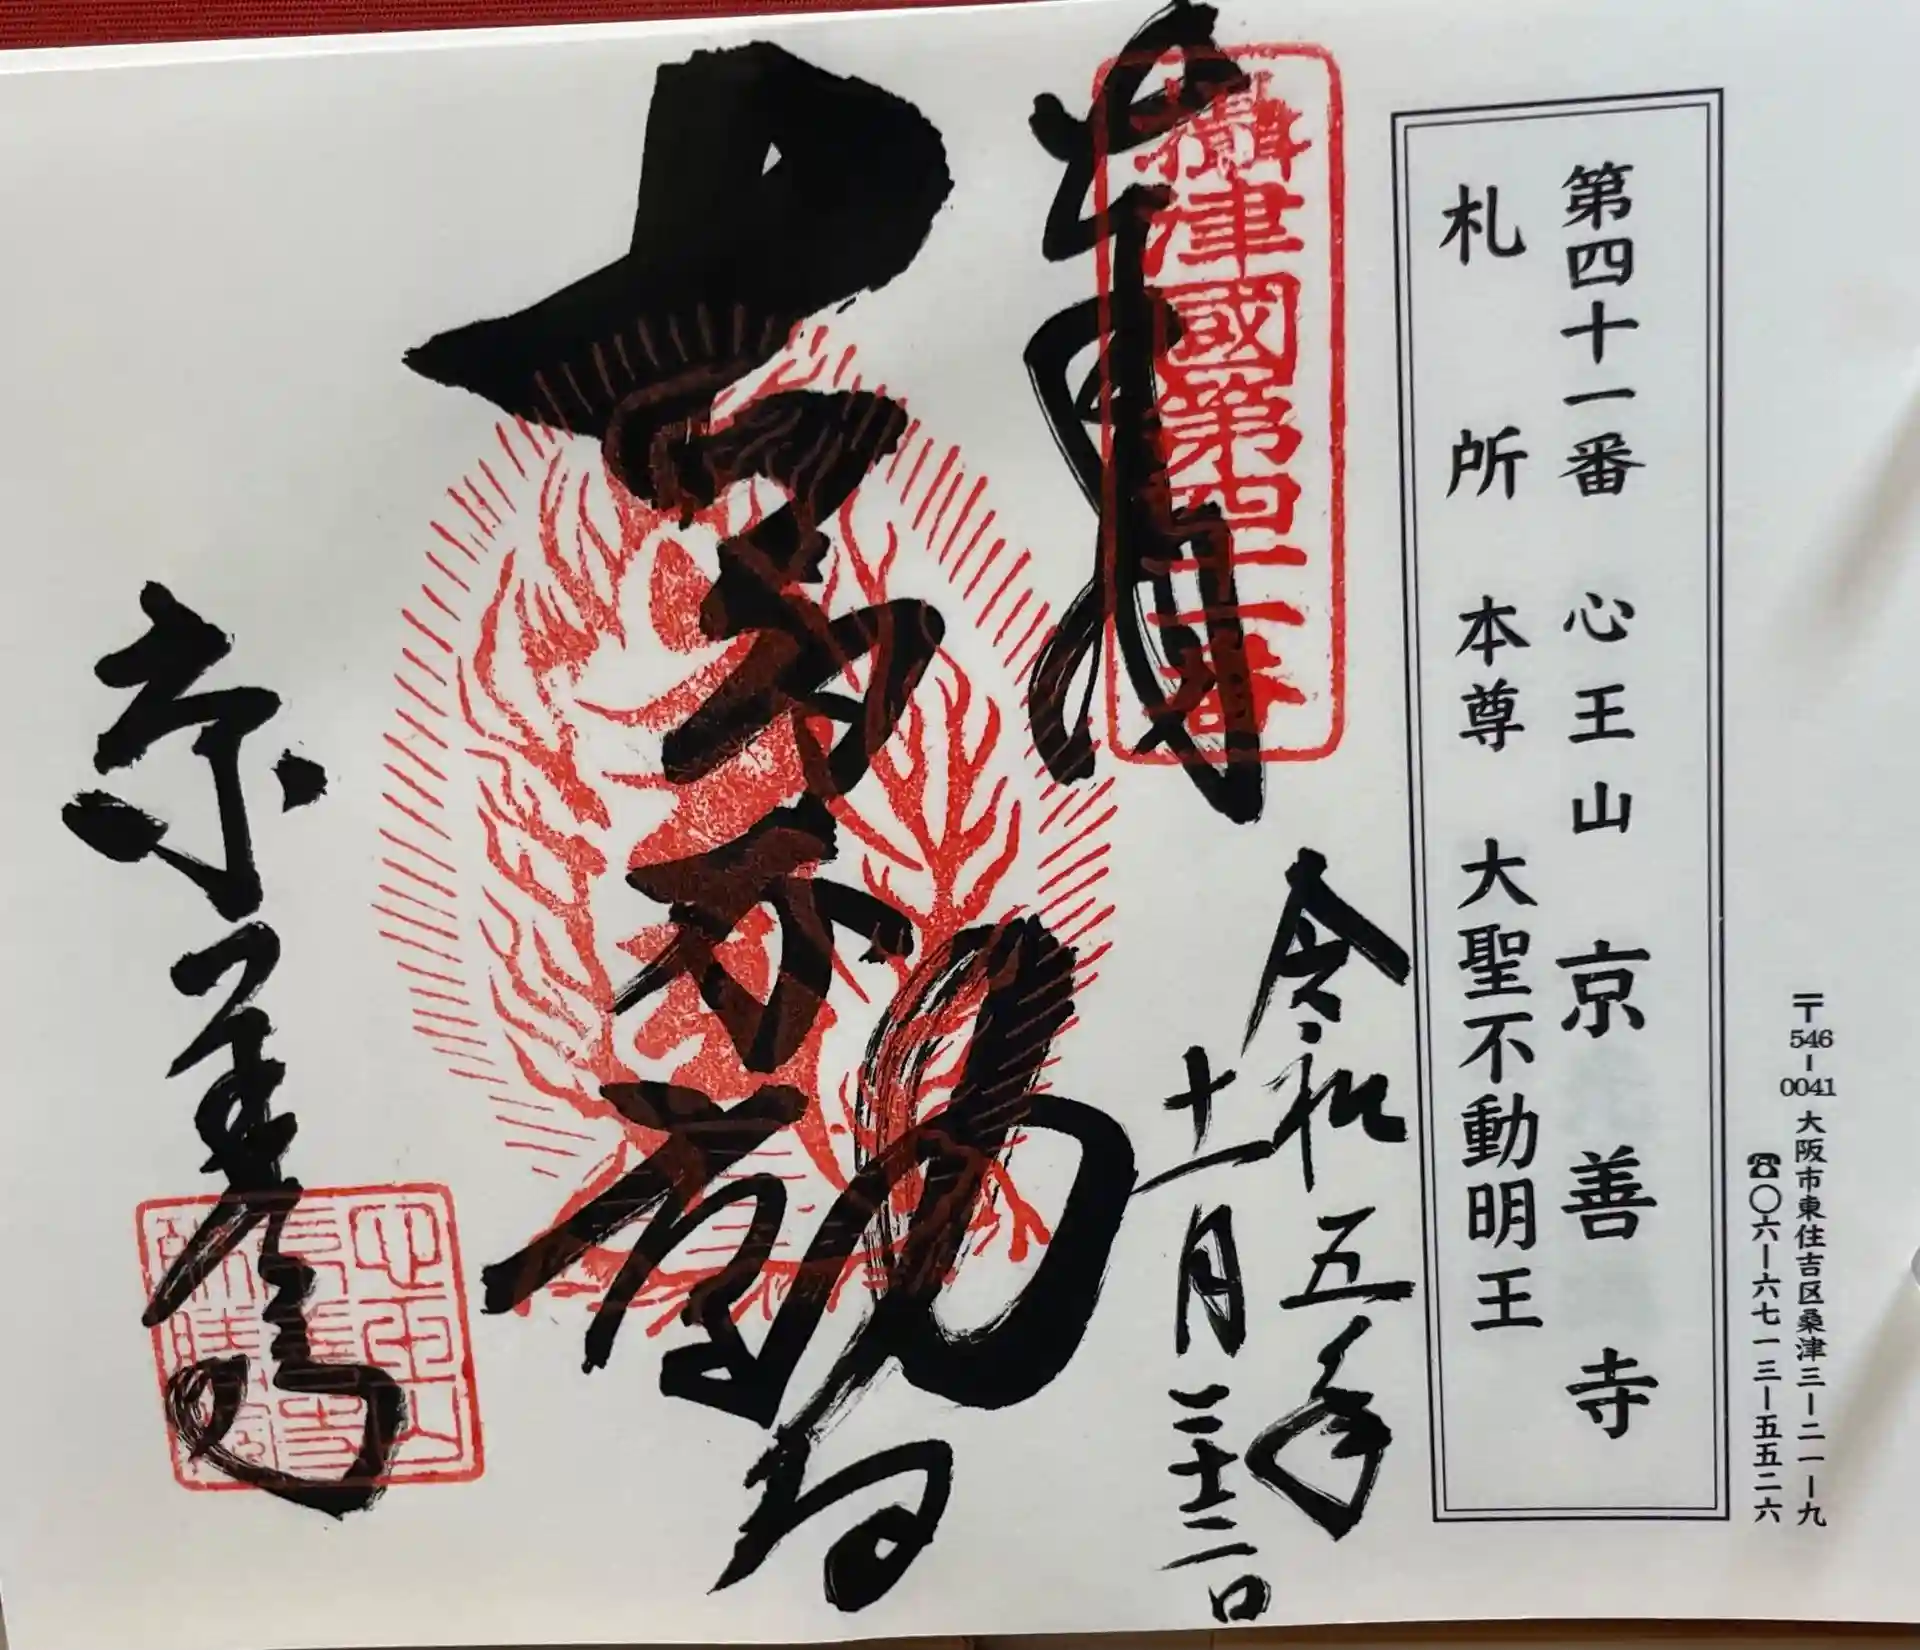 〒546-0041 大阪市東住吉区桑津三-二一-九
☎〇六-六七一三-五五二六
第四十一番 心王山 京善寺
札所 本尊 大聖不動明王
攝津國第四十一番
奉拝
令和五年
十一月二十二日
京善寺